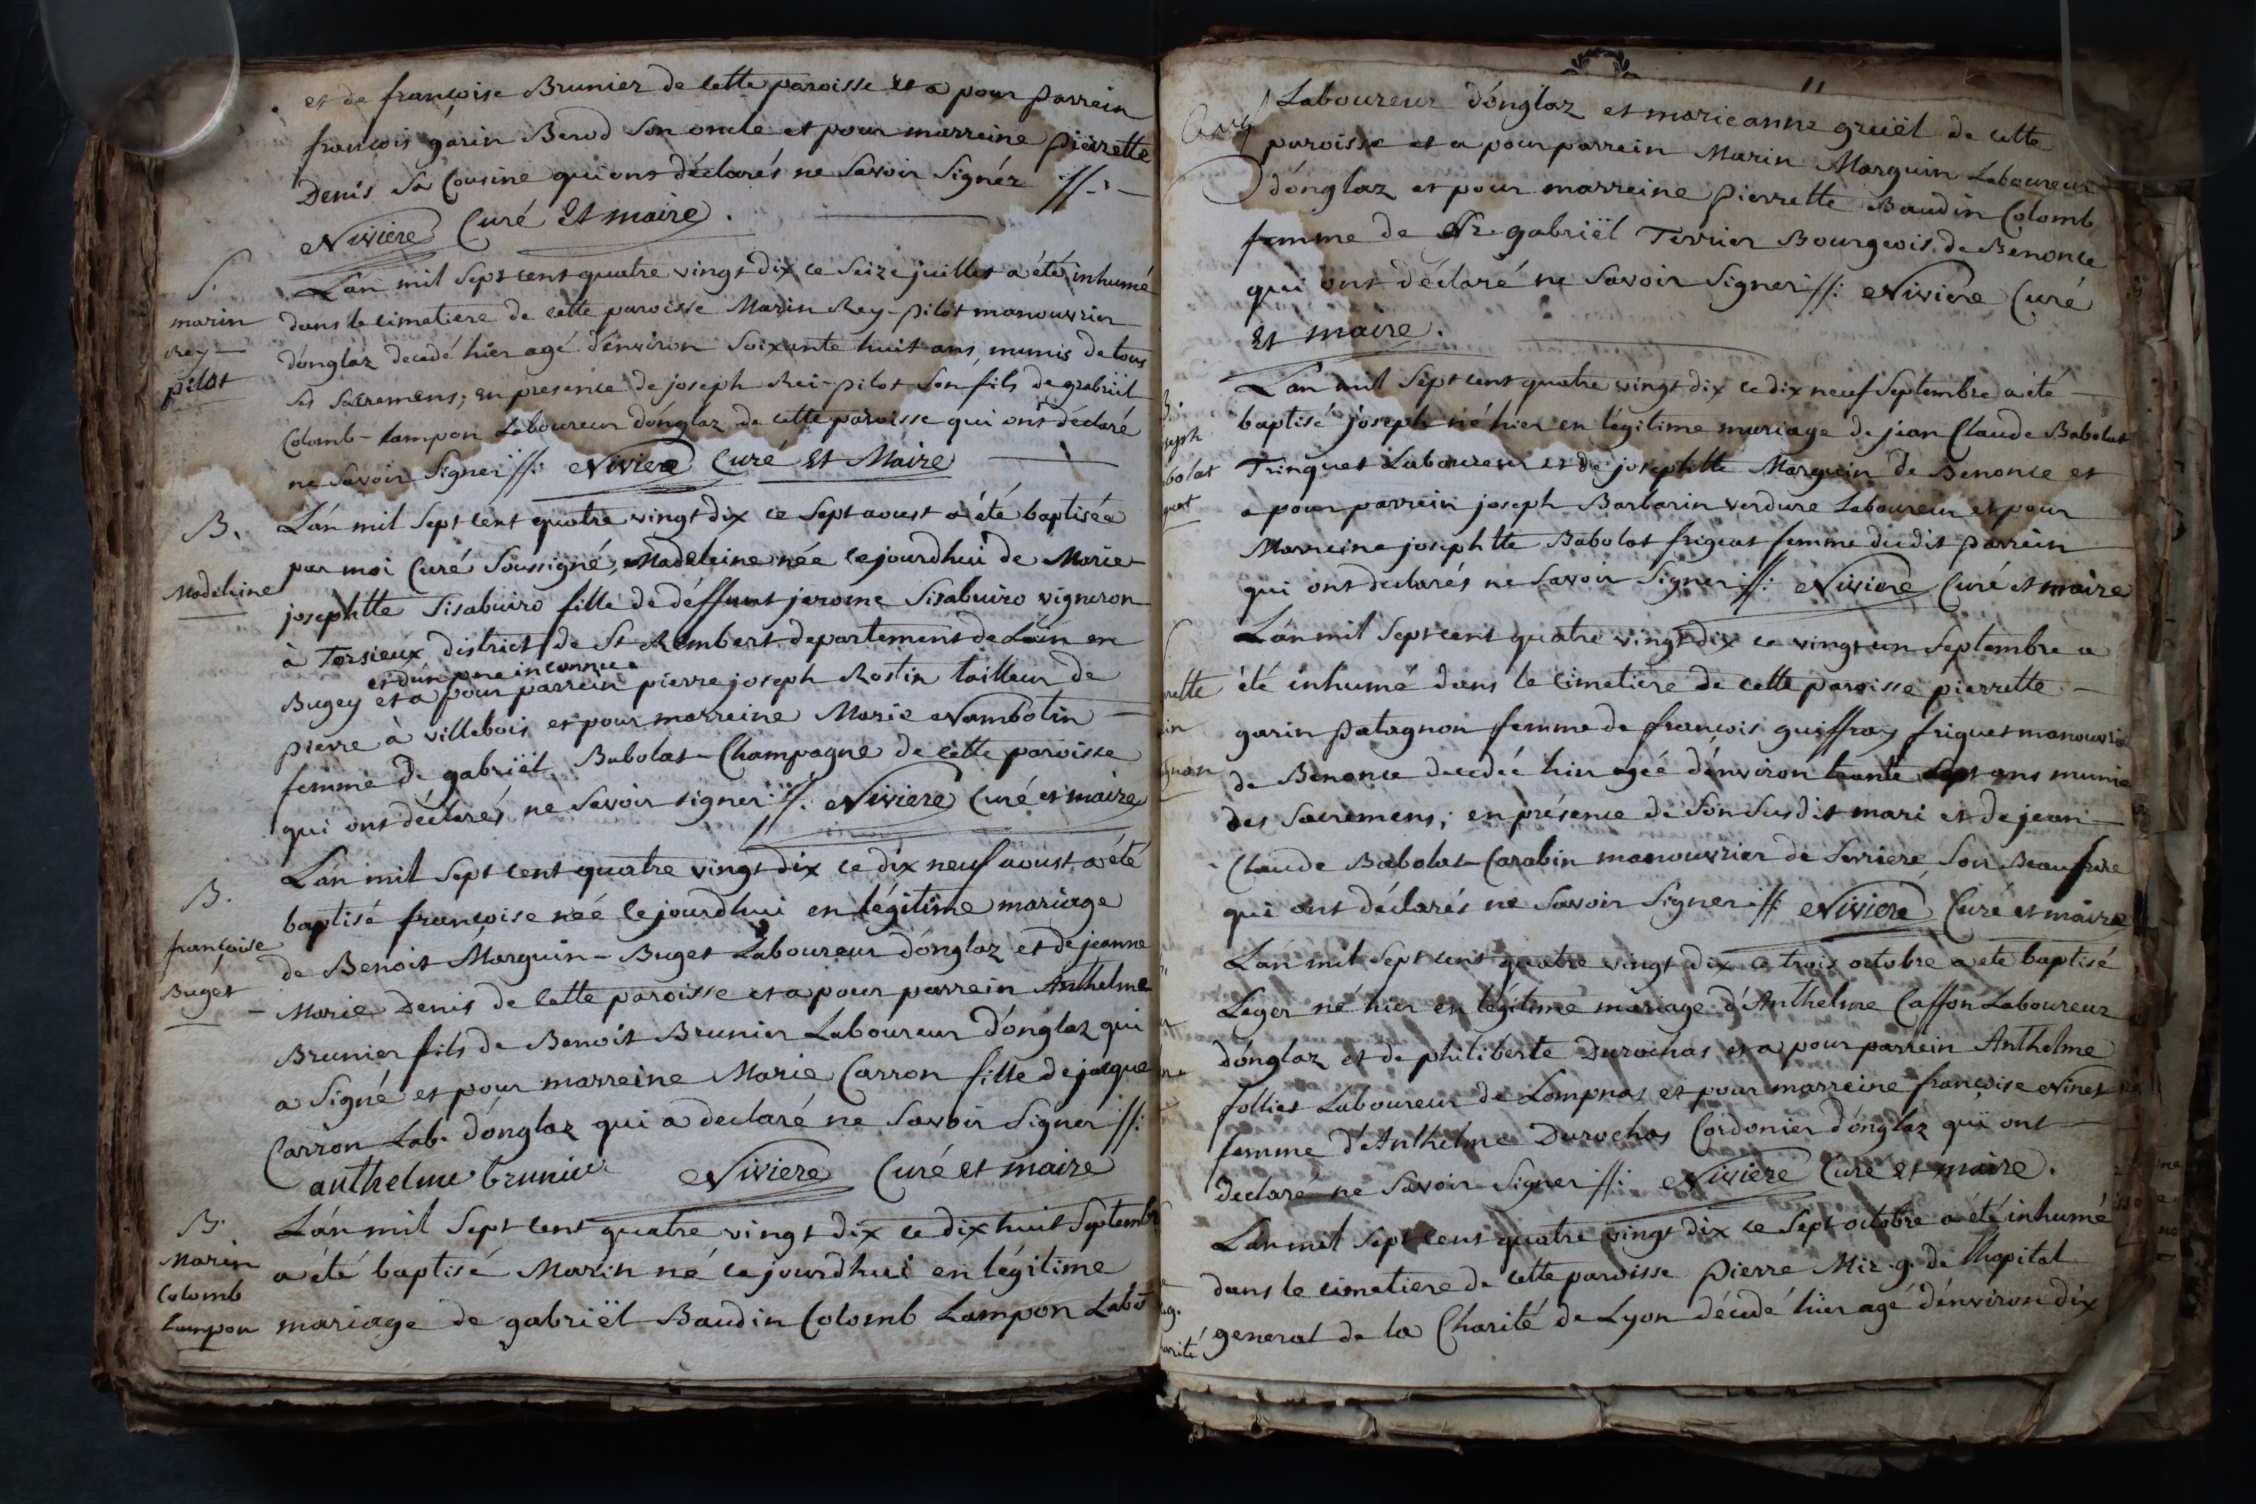 et de françoise Brunier de cette paroisse et a pour parrein
françois garin Berod son oncle et pour marreine pierrette
Denis sa Cousine qui ont déclarés ne savoir signér //.
Niviere Curé Et maire.
S.
marin
Rey-
pilot
L'an mil sept cent quatre vingt dix ce seize juillet a été inhumé
dans le cimetiere de cette paroisse Marin Rey-pilot manouvrier
d'onglaz decedé hier agé d'environ soixante huit ans, munis de tous
ses sacremens; en presence de joseph Rei-pilot son fils de gabriël
Colomb-Lampon Laboureur d'onglaz de cette paroisse qui ont déclaré
ne savoir signer //: Niviere Curé Et Maire
B.
Madeleine
L'an mil sept cent quatre vingt dix ce sept aoust a été baptiséa
par moi Curé soussigné, Madeleine née cejourdhui de Marie-
josephtte Sisabuiro fille de déffunt jerome Sisabuiro vigneron
à Torsieux district de St Rembert departement de L'ain en
et d'un pere inconnu
Bugey et a pour parrein pierre joseph Rostin tailleur de
pierre à villebois et pour marreine Marie Nambotin
femme de gabriël Babolat-Champagne de cette paroisse
qui ont déclarés ne savoir signer //. Niviere Curé et maire
B.
françoise
Buget
L'an mil sept cent quatre vingt dix ce dix neuf aoust a été
baptisé françoise née cejourdhui en légitime mariage
de Benoit Marguin-Buget Laboureur d'onglaz et de jeanne
Marie Denis de cette paroisse et a pour parrein Anthelme
Brunier fils de Benoit Brunier Laboureur d'onglaz qui
a signé et pour marreine Marie Carron fille de jacque
Carron Lab. d'onglaz qui a declaré ne savoir signer //:
anthelme brunier Niviere Curé et maire
B.
Marin
Colomb
Lampon
L'an mil sept cent quatre vingt dix ce dix huit septembr
a été baptisé Marin né cejourdhui en légitime
mariage de gabriël Baudin Colomb Lampon Labo
Laboureur d'onglaz et marieanne gruël de cette
paroisse et a pour parrein Marin Marguin Laboureur
d'onglaz et pour marreine pierrette Baudin Colomb
femme de Sr. gabriël Terrier Bourgeois de Benonce
qui ont déclaré ne savoir signer //: Niviere Curé
Et maire.
L'an mil sept cent quatre vingt dix ce dix neuf septembre a été
baptisé joseph né hier en légitime mariage de jean Claude Babolat
Trinquet Laboureur et de josephtte Marguin de Benonce et
a pour parrein joseph Barbarin verdure Laboureur et pour
Marreine josephtte Babolat friquet femme du dit parrein
qui ont declarés ne savoir signer //: Niviere Curé et maire
L'an mil sept cent quatre vingt dix ce vingt un septembre a
été inhumé dans le cimetiere de cette paroisse pierrette
garin patagnon femme de françois guiffray friquet manouvrier
de Benonce decedée hier agée d'environ trante sept ans munie
des sacremens; en présence de son susdit mari et de jean
Claude Babolat-Carabin manouvrier de Serriere son Beaufrere
qui ont déclarés ne savoir signer //: Niviere Curé et maire
L'an mil sept cent quatre vingt dix ce trois octobre a eté baptisé
Leger né hier en légitime mariage d'Anthelme Caffon Laboureur
d'onglaz et de philiberte Durochas et a pour parrein Anthelme
follier Laboureur de Lompnas et pour marreine françoise Ninet
femme d'Anthelme Durochas Cordonier d'onglaz qui ont
declaré ne savoir signer //: Niviere Curé et maire.
L'an mil sept cent quatre vingt dix ce sept octobre a été inhumé
dans le cimetiere de cette paroisse pierre Mic. g. de lhopital
general de la Charité de Lyon décédé hier agé d'environ dix